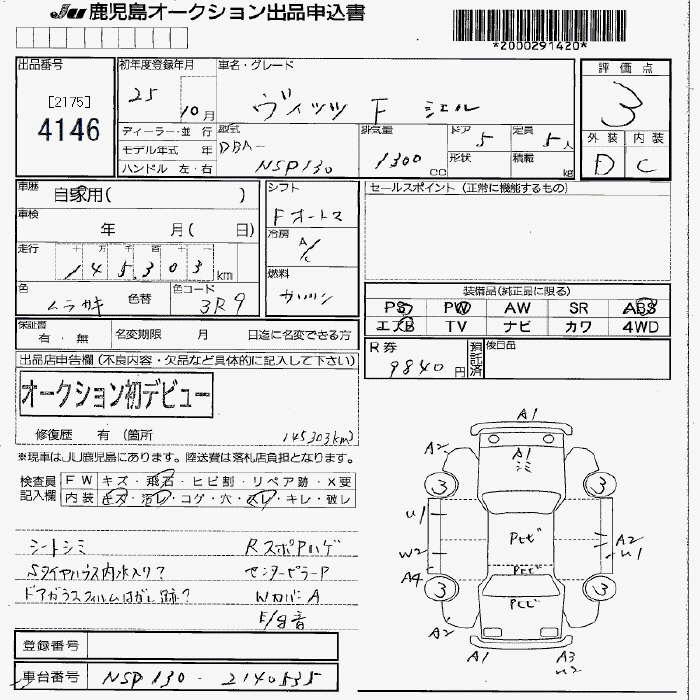 JU 鹿児島オークション出品申込書
*2000291420*
出品番号
[2175]
4146
初年度登録年月
25 10月
車名・グレード
ヴィッツ F シエル
評価点
3
外装 内装
D C
ディーラー・並 行
モデル年式 年
ハンドル 左・右
型式
DBA-
NSP130
排気量
1300 CC
ドア 5
形状
定員 5人
積載 kg
車歴
自家用( )
車検
年 月( 日)
走行
十 万 千 百 十 一
145,303 km
色
ムラサキ
色替
色コード
3R9
シフト
Fオートマ
冷房
A/C
燃料
ガソリン
セールスポイント (正常に機能するもの)
装備品(純正品に限る)
PS PW AW SR ABS
エアB TV ナビ カワ 4WD
保証書
有・無
名変期限 月 日迄に名変できる方
R券
9840円
預託済
後日品
出品店申告欄(不良内容・欠品など具体的に記入して下さい)
オークション初デビュー
修復歴 有 (箇所
145303km)
※現車はJU鹿児島にあります。陸送費は落札店負担となります。
検査員
記入欄
FW キズ・飛石・ヒビ割・リペア跡・X要
内装 キズ・汚レ・コゲ・穴・スレ・キレ・破レ
シートシミ
Rスポアハゲ
Sタイヤハウス内水入り?
センターピラーP
ドアガラスフィルムはがし跡?
WカバーA
E/g音
A1
A2
A1
シミ
3
3
U1
Pヒビ
A2
U1
W2
Pヒビ
A4
3
3
Pヒビ
A2
A1
A3
U2
登録番号
車台番号 NSP130-2140535